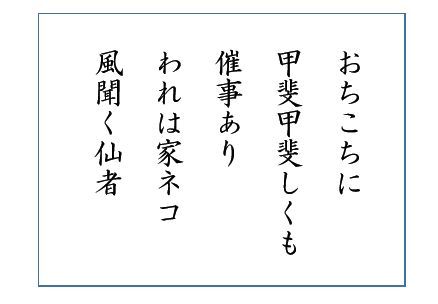 おちこちに
甲斐甲斐しくも
催事あり
われは家ネコ
風聞く仙者